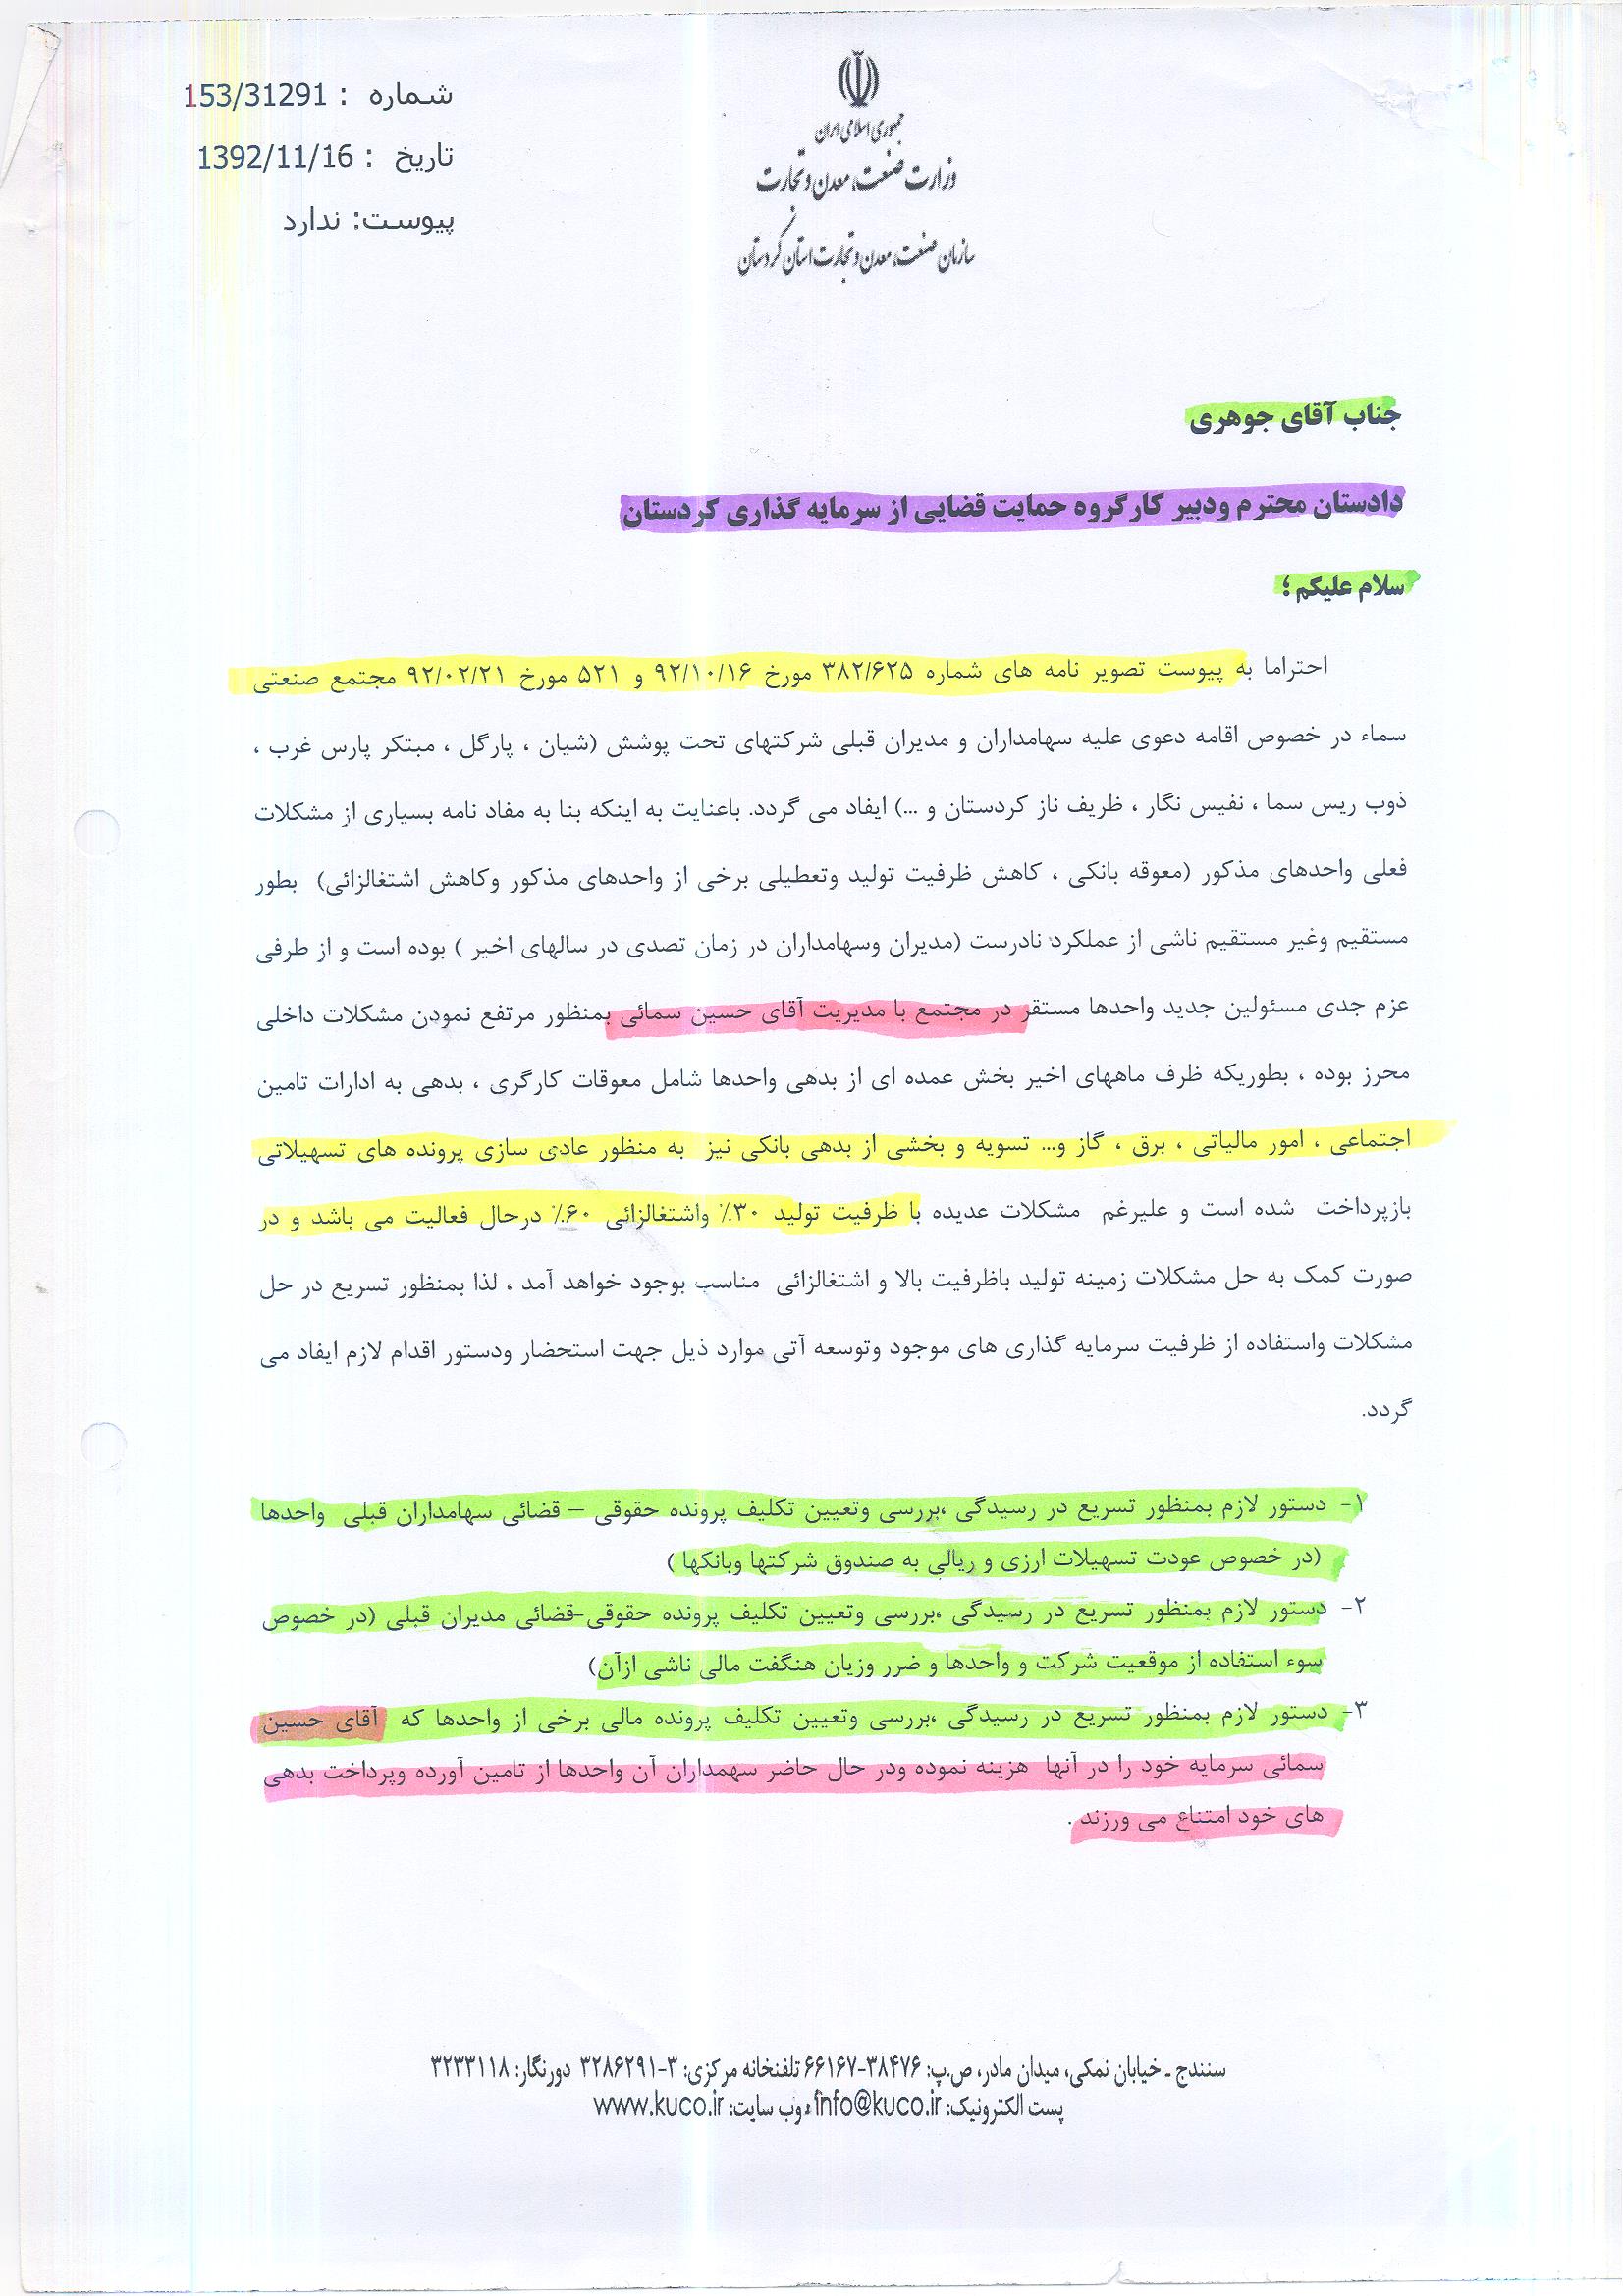 شماره : 153/31291
تاریخ : 1392/11/16
پیوست: ندارد
جمهوری اسلامی ایران
وزارت صنعت، معدن و تجارت
سازمان صنعت، معدن و تجارت استان کردستان
جناب آقای جوهری
دادستان محترم ودبیر کارگروه حمایت قضایی از سرمایه گذاری کردستان
سلام علیکم ؛
احتراما به پیوست تصویر نامه های شماره ۳۸۲/۶۲۵ مورخ ۹۲/۱۰/۱۶ و ۵۲۱ مورخ ۹۲/۰۲/۲۱ مجتمع صنعتی
سماء در خصوص اقامه دعوی علیه سهامداران و مدیران قبلی شرکتهای تحت پوشش (شیان ، پارگل ، مبتکر پارس غرب ،
ذوب ریس سما ، نفیس نگار ، ظریف ناز کردستان و ...) ایفاد می گردد. باعنایت به اینکه بنا به مفاد نامه بسیاری از مشکلات
فعلی واحدهای مذکور (معوقه بانکی ، کاهش ظرفیت تولید وتعطیلی برخی از واحدهای مذکور وکاهش اشتغالزائی) بطور
مستقیم وغیر مستقیم ناشی از عملکرد نادرست (مدیران وسهامداران در زمان تصدی در سالهای اخیر ) بوده است و از طرفی
عزم جدی مسئولین جدید واحدها مستقر در مجتمع با مدیریت آقای حسین سمائی بمنظور مرتفع نمودن مشکلات داخلی
محرز بوده ، بطوریکه ظرف ماههای اخیر بخش عمده ای از بدهی واحدها شامل معوقات کارگری ، بدهی به ادارات تامین
اجتماعی ، امور مالیاتی ، برق ، گاز و... تسویه و بخشی از بدهی بانکی نیز به منظور عادی سازی پرونده های تسهیلاتی
بازپرداخت شده است و علیرغم مشکلات عدیده با ظرفیت تولید ۳۰٪ واشتغالزائی ۶۰٪ درحال فعالیت می باشد و در
صورت کمک به حل مشکلات زمینه تولید باظرفیت بالا و اشتغالزائی مناسب بوجود خواهد آمد ، لذا بمنظور تسریع در حل
مشکلات واستفاده از ظرفیت سرمایه گذاری های موجود وتوسعه آتی موارد ذیل جهت استحضار ودستور اقدام لازم ایفاد می
گردد.
۱- دستور لازم بمنظور تسریع در رسیدگی ،بررسی وتعیین تکلیف پرونده حقوقی – قضائی سهامداران قبلی واحدها
(در خصوص عودت تسهیلات ارزی و ریالی به صندوق شرکتها وبانکها )
۲- دستور لازم بمنظور تسریع در رسیدگی ،بررسی وتعیین تکلیف پرونده حقوقی-قضائی مدیران قبلی (در خصوص
سوء استفاده از موقعیت شرکت و واحدها و ضرر وزیان هنگفت مالی ناشی ازآن)
۳- دستور لازم بمنظور تسریع در رسیدگی ،بررسی وتعیین تکلیف پرونده مالی برخی از واحدها که آقای حسین
سمائی سرمایه خود را در آنها هزینه نموده ودر حال حاضر سهمداران آن واحدها از تامین آورده وپرداخت بدهی
های خود امتناع می ورزند .
سنندج ـ خیابان نمکی، میدان مادر، ص.پ: ۳۸۴۷۶-۶۶۱۶۷ تلفنخانه مرکزی: ۳-۳۲۸۶۲۹۱ دورنگار: ۳۲۳۳۱۱۸
پست الکترونیک: info@kuco.ir ، وب سایت: www.kuco.ir